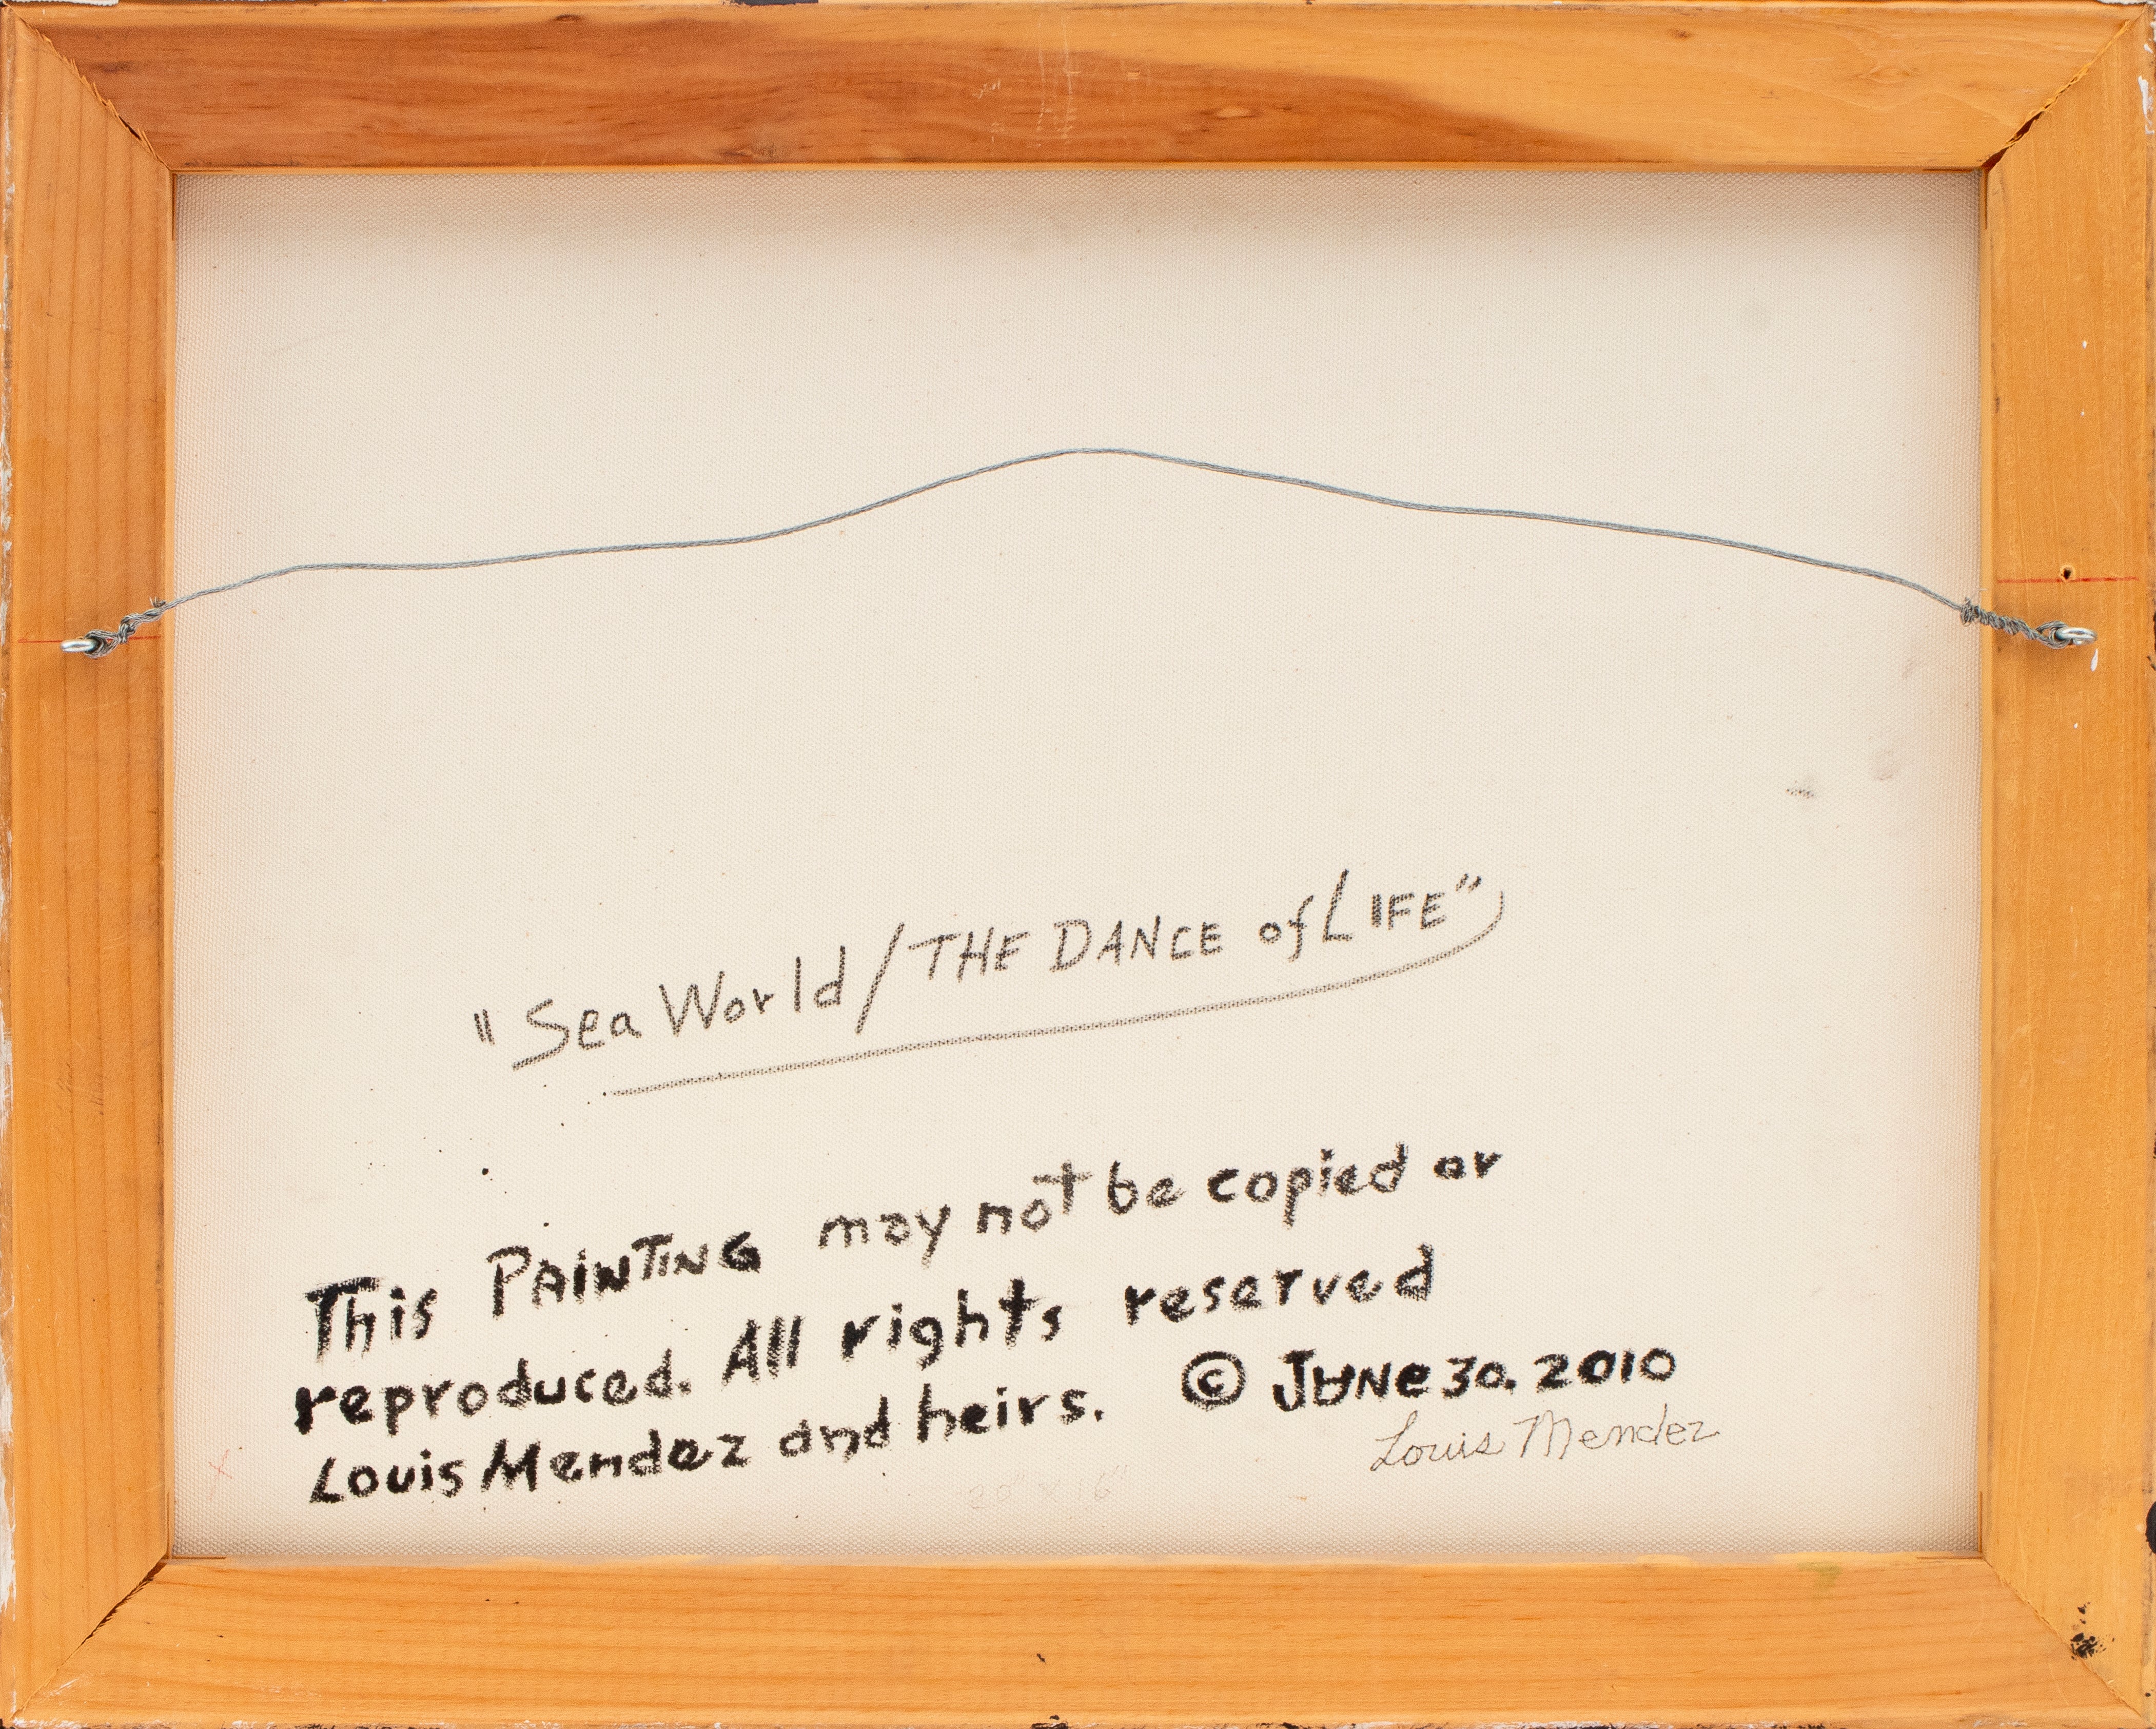 "Sea World/THE DANCE of LIFE"
This PAINTING may not be copied or
reproduced. All rights reserved
Louis Mendez and heirs. © JUNe 30. 2010
Louis Mendez